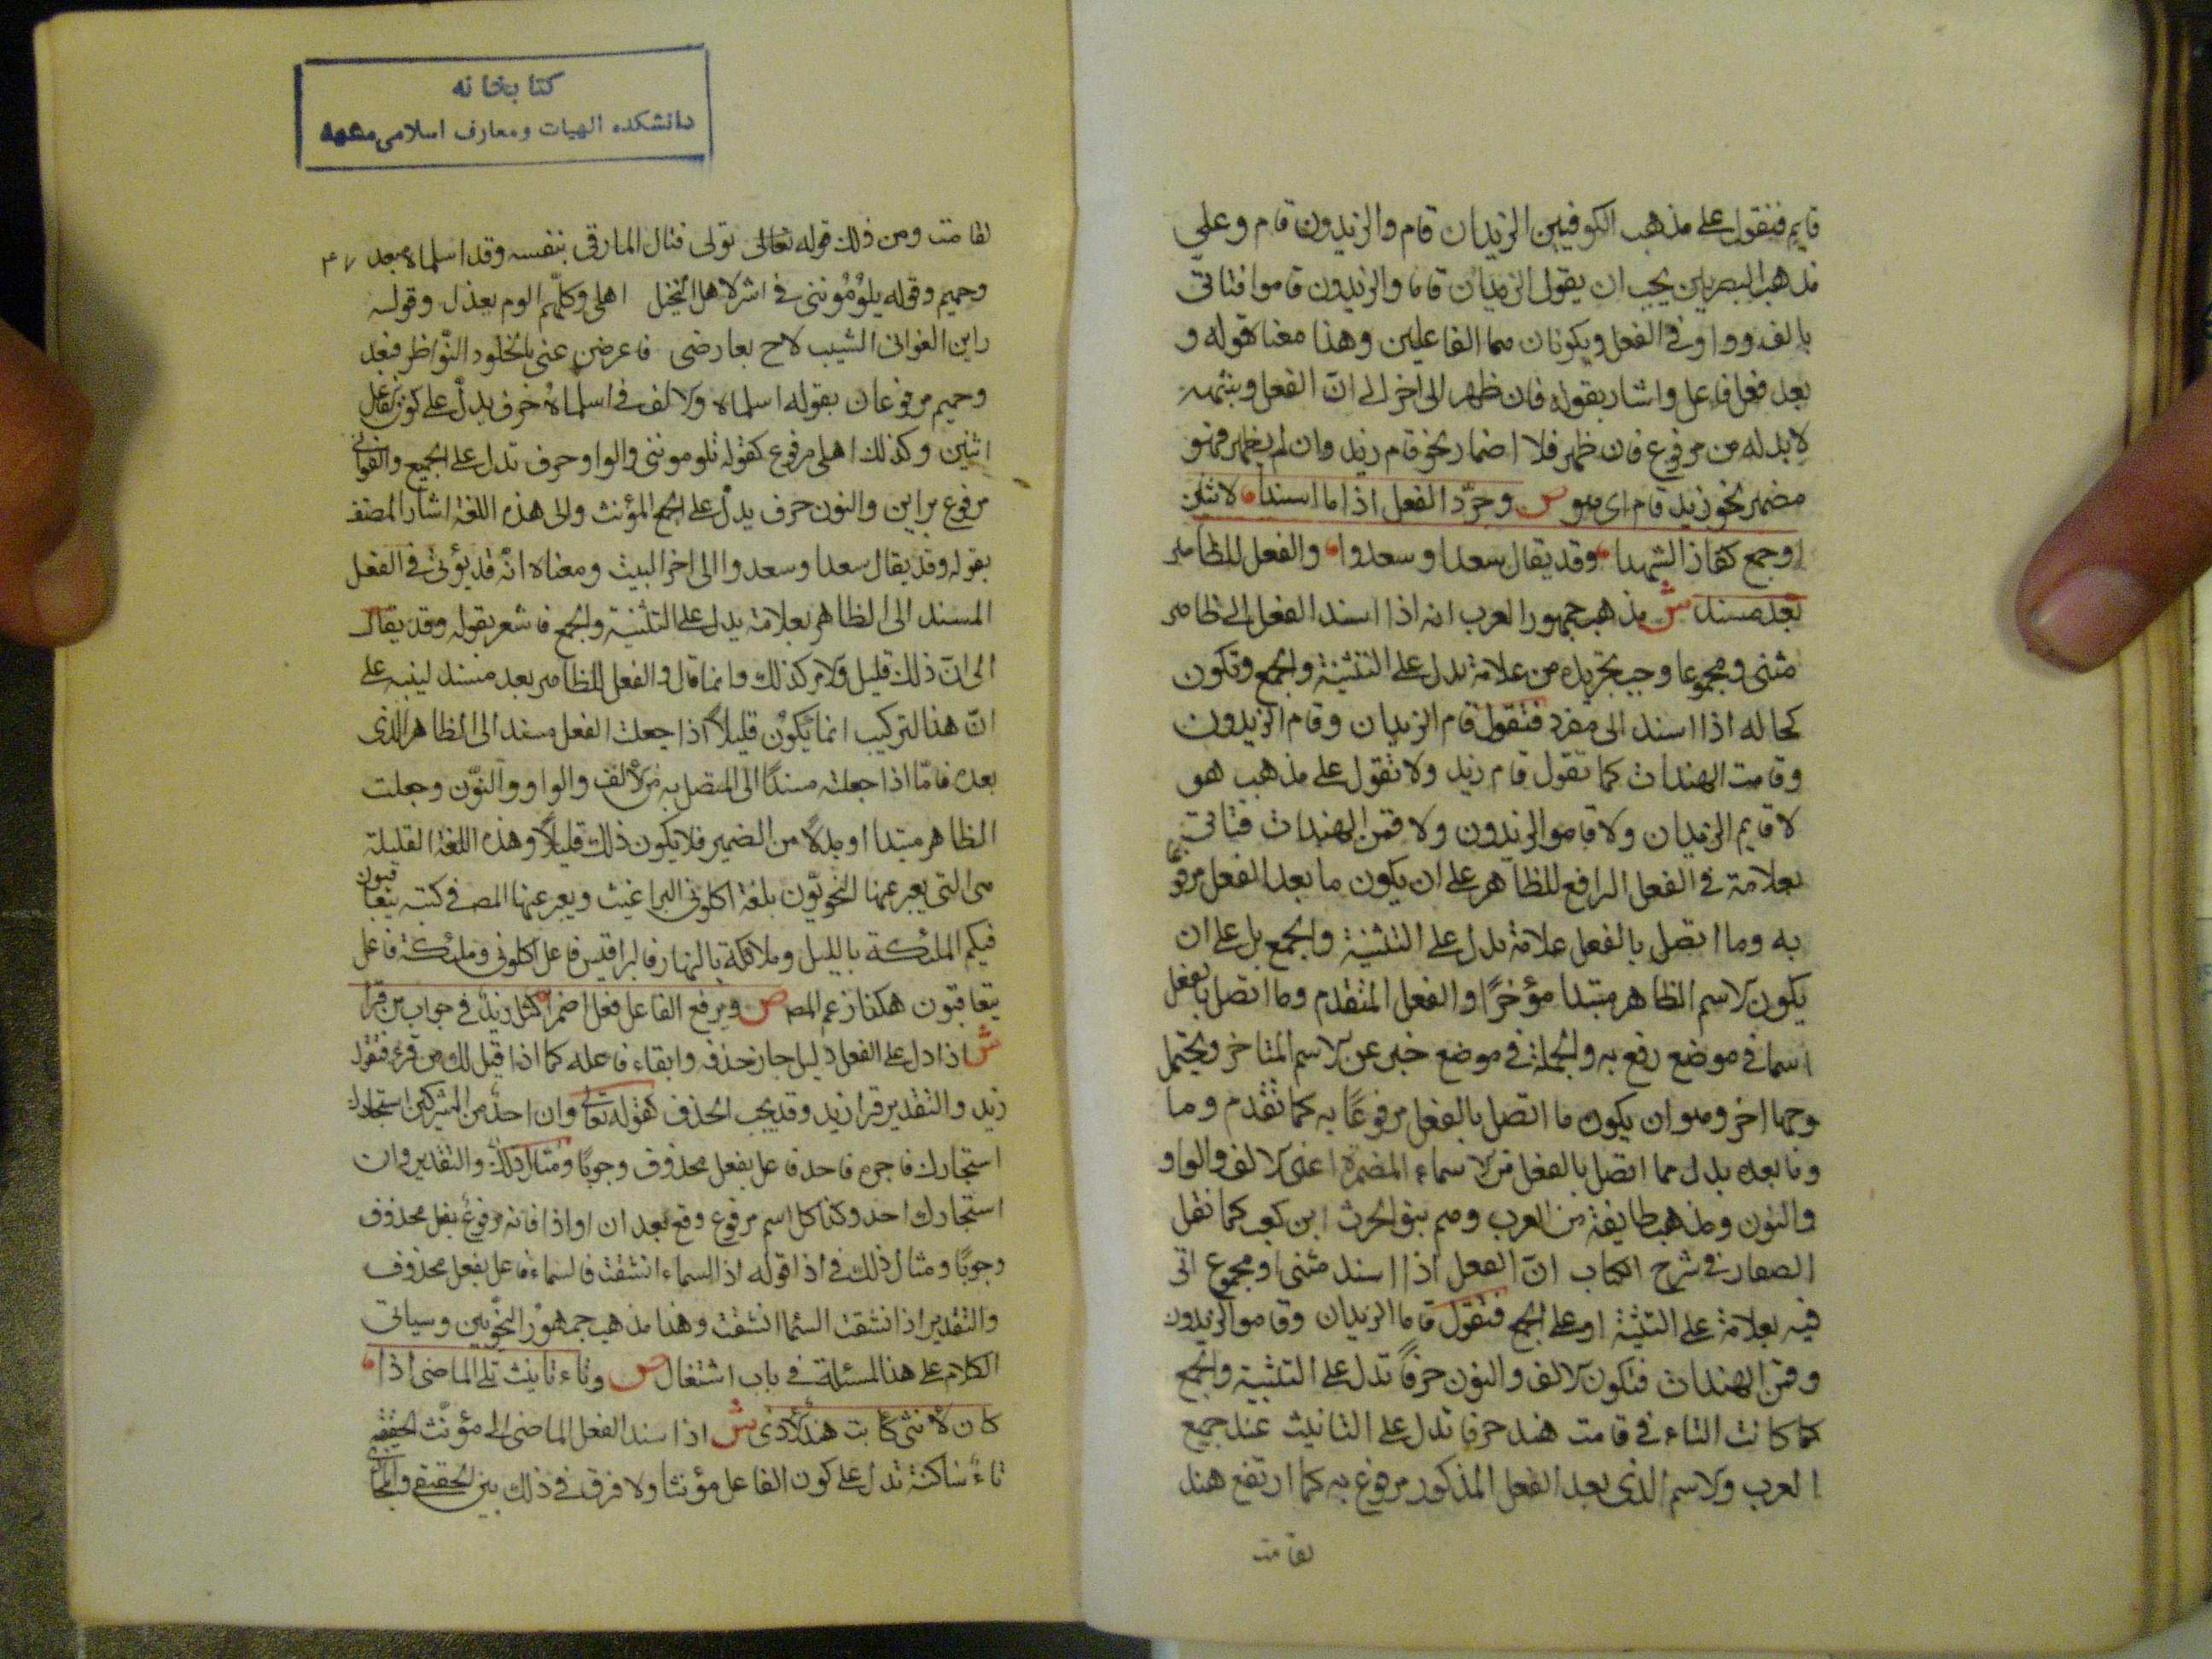 قايم فنقول على مذهب الكوفيين الزيدان قام والزيدون قام وعلى
مذهب البصريين يجب ان يقول الزيدان قاما والزيدون قاموا فتاتى
بالف وواو فى الفعل ويكونان هما الفاعلين وهذا معناه قوله و
بعد فعل فاعل واشار بقوله فان ظهر الى اخر الى انّ الفعل وشبهه
لا بد له من مرفوع فان ظهر فلا اضمار نحو قام زيد وان لم يظهر فهو
مضمر نحو زيد قام اى هو ص وجرّد الفعل اذا ما اسندا لاثنين
اوجمع كفاز الشهدا وقد يقال سعدا وسعدوا والفعل للظاهر
بعد مسند ش مذهب جمهور العرب انه اذا اسند الفعل الى ظاهر
مثنى ومجموعا وجب تجريده من علامة يدل على التثنية والجمع وتكون
كحاله اذا اسند الى مفرد فنقول قام الزيدان وقام الزيدون
وقامت الهندات كما تقول قام زيد ولا تقول على مذهب هو
لا قايم الزيدان ولا قاموا الزيدون ولا قمن الهندات فتاتى
بعلامة فى الفعل الرافع للظاهر على ان يكون ما بعد الفعل مرفوعا
به وما اتصل بالفعل علامة يدل على التثنية والجمع بل على ان
يكون الاسم الظاهر مبتدا مؤخرًا والفعل المتقدم وما اتصل بالفعل
اسما فى موضع رفع به والجملة فى موضع خبر عن الاسم المتاخر ويحتمل
وجها اخر وهو ان يكون ما اتصل بالفعل مرفوعًا به كما تقدم وما
وما بعده بدل مما اتصل بالفعل من الاسماء المضمرة اعنى الالف والواو
والنون ومذهب طايفة من العرب وهم بنو الحرث ابن كعب كما نقل
الصفار فى شرح الكتاب انّ الفعل اذا اسند مثنى او مجموع اتى
فيه بعلامة على التثنية او على الجمع فنقول قاما الزيدان وقاموا الزيدون
وقمن الهندات فتكون الالف والنون حرفًا تدل على التثنية والجمع
كما كانت التاء فى قامت هند حرفا تدل على التانيث عند جميع
العرب والاسم الذى بعد الفعل المذكور مرفوع به كما ارتفع هند
بقامت
كتابخانه
دانشكده الهيات ومعارف اسلامى مشهد
بقامت ومن ذلك قوله تعالى تولى قتال المارقى بنفسه وقد اسلماه مبعد ٤٧
وحميم وقوله يلومُوننى فى اشر لاهل النخل اهلى وكلّهم الوم بعذل وقوله
راين الغوانى الشيب لاح بعارضى فاعرضن عنى بالخلود النّواظر فبعد
وحميم مرفوعان بقوله اسلماه والالف فى اسلماه حرف يدلّ على كون الفاعل
اثنين وكذلك اهلى مرفوع كقوله تلوموننى والواو حرف تدل على الجميع والغوانى
مرفوع براين والنون حرف يدلّ على الجمع المؤنث والى هذه اللغة اشار المصنف
بقوله وقد يقال سعدا وسعدوا الى اخر البيت ومعناه انّه قد يؤتى فى الفعل
المسند الى الظاهر بعلامة يدل على التثنية والجمع فاشعر بقوله وقد يقال
الى انّ ذلك قليل والامر كذلك وانما قال والفعل للظاهر بعد مسند لينبه على
انّ هذا التركيب انما يكون قليلاً اذا جعلت الفعل مسند الى الظاهر الذى
بعده فامّا اذا جعلته مسندًا الى المتصل به من الالف والواو والنّون وجعلت
الظاهر مبتدا او بدلاً من الضمير فلا يكون ذلك قليلاً وهذه اللغة القليلة
هى التى يعبر عنها النحويّون بلغة اكلونى البراغيث ويعبر عنها المص فى كتبه يتعاقبون
فيكم الملئكة بالليل وملائكة بالنهار فالبراغيث فاعل اكلونى وملئكة فاعل
يتعاقبون هكذا زعم المص ص ويرفع الفاعل فعل اضمرا كمثل زيد فى جواب من قرا
ش اذا دل على الفعل دليل جاز حذفه وابقاء فاعله كما اذا قيل لك من قرء فتقول
زيد والتقدير قرا زيد وقد يجب الحذف كقوله تعالى وان احد من المشركين استجارك
استجارك فاجره فاحد فاعل بفعل محذوف وجوبًا ومثال ذلك والتقدير وان
استجارك احد وكذا كل اسم مرفوع وقع بعد ان او اذا فانه مرفوع بفعل محذوف
وجوبًا ومثال ذلك فى اذا قوله اذا السماء انشقت فالسماء فاعل بفعل محذوف
والتقدير اذا انشقت السما انشقت وهذا مذهب جمهور النحويّين وسياتى
الكلام على هذا المسئلة فى باب اشتغال ص وتاء تانيث تلى الماضى اذا
كان لانثى كابت هند الاذى ش اذا سند الفعل الماضى الى مؤنّث لحقته
تاءٌ ساكنة تدل على كون الفاعل مؤنثا ولا فرق فى ذلك بين الحقيقى والمجازى